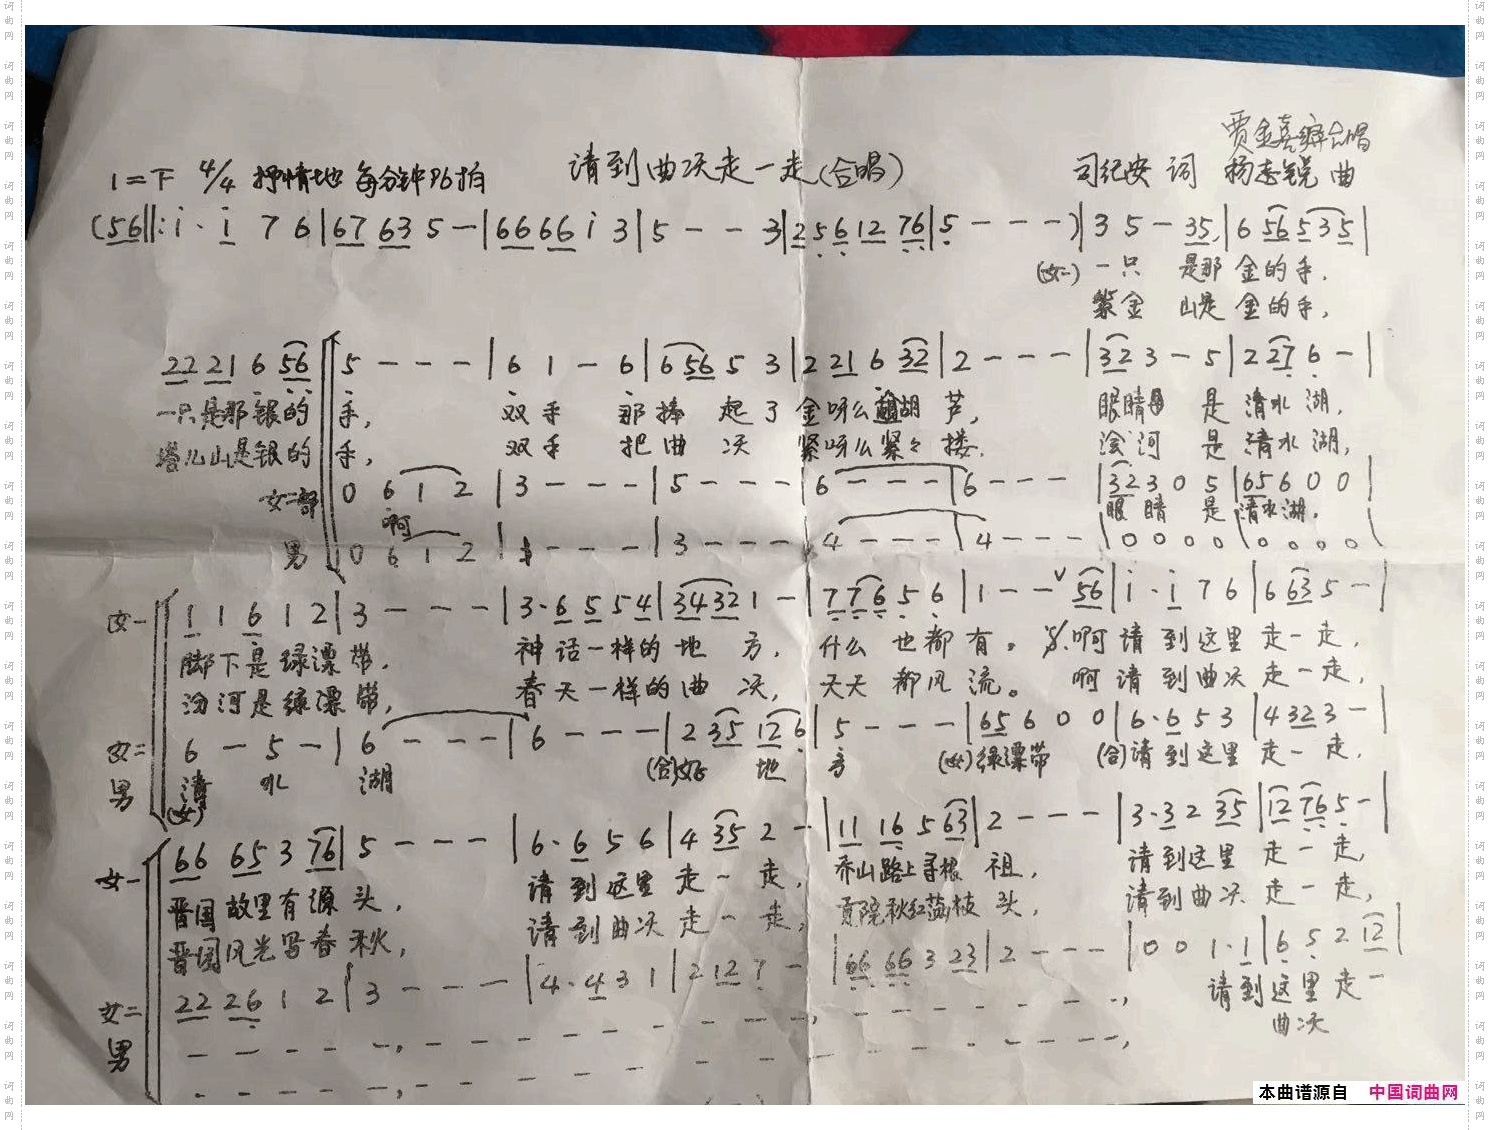 贾金喜编合唱
1=F 4/4 抒情地 每分钟76拍 请到曲沃走一走(合唱) 司纪安 词 杨志锐 曲
(56‖:i· i 7 6|67 63 5 -|66 66 i 3|5 - - 3|2 5 6 12 76|5 - - -)|3 5 - 35|6 56 5 3 5|
(女一) 一只 是那 金的手,
紫金 山是 金的手,
22 21 6 56|5 - - -|6 1 - 6|6 56 5 3|2 21 6 32|2 - - -|32 3 - 5|2 27 6 -|
一只是那银的 手, 双手 那捧 起了 金呀么葫芦, 眼睛 是 清水 湖,
塔儿山是银的 手, 双手 把曲 沃 紧呀么紧々 搂, 浍河 是 清水 湖,
女二部 0 6 1 2|3 - - -|5 - - -|6 - - -|6 - - -|32 3 0 5|65 6 0 0|
啊 眼 睛 是 清水湖,
男 0 6 1 2| - - -|3 - - -|4 - - -|4 - - -|0 0 0 0|0 0 0 0
女一 1 1 6 1 2|3 - - -|3·6 5 5 4|3432 1 -|7 7 6 5 6|1 - - 56|i· i 7 6|6 63 5 -|
脚下是绿漂带, 神话一样的地 方, 什么 也都有。 啊请到这里 走一走,
汾河是绿漂带, 春天一样的曲 沃, 天天 都风流。 啊请到曲沃 走一走,
女二 男 6 - 5 -|6 - - -|6 - - -|2 35 12 6|5 - - -|65 6 0 0|6·6 5 3|4 32 3 -|
清 水 湖 (合)好 地 方 (女)绿漂带 (合)请到这里 走一走,
(女)
女一 66 65 3 76|5 - - -|6·6 5 6|4 35 2 -|11 16 5 63|2 - - -|3·3 2 35|12 76 5 -|
晋国故里有源头, 请到这里 走一走, 乔山路上寻根 祖, 请到这里 走一走,
晋国风光写春秋, 请到曲沃 走一走, 贡院秋红荔枝头, 请到曲沃 走一走,
女二 男 22 26 1 2|3 - - -|4·4 3 1|2 12 7 -|66 66 3 23|2 - - -|0 0 1·1|6 5 2 12|
请到这里走一
曲沃
本曲谱源自 中国词曲网